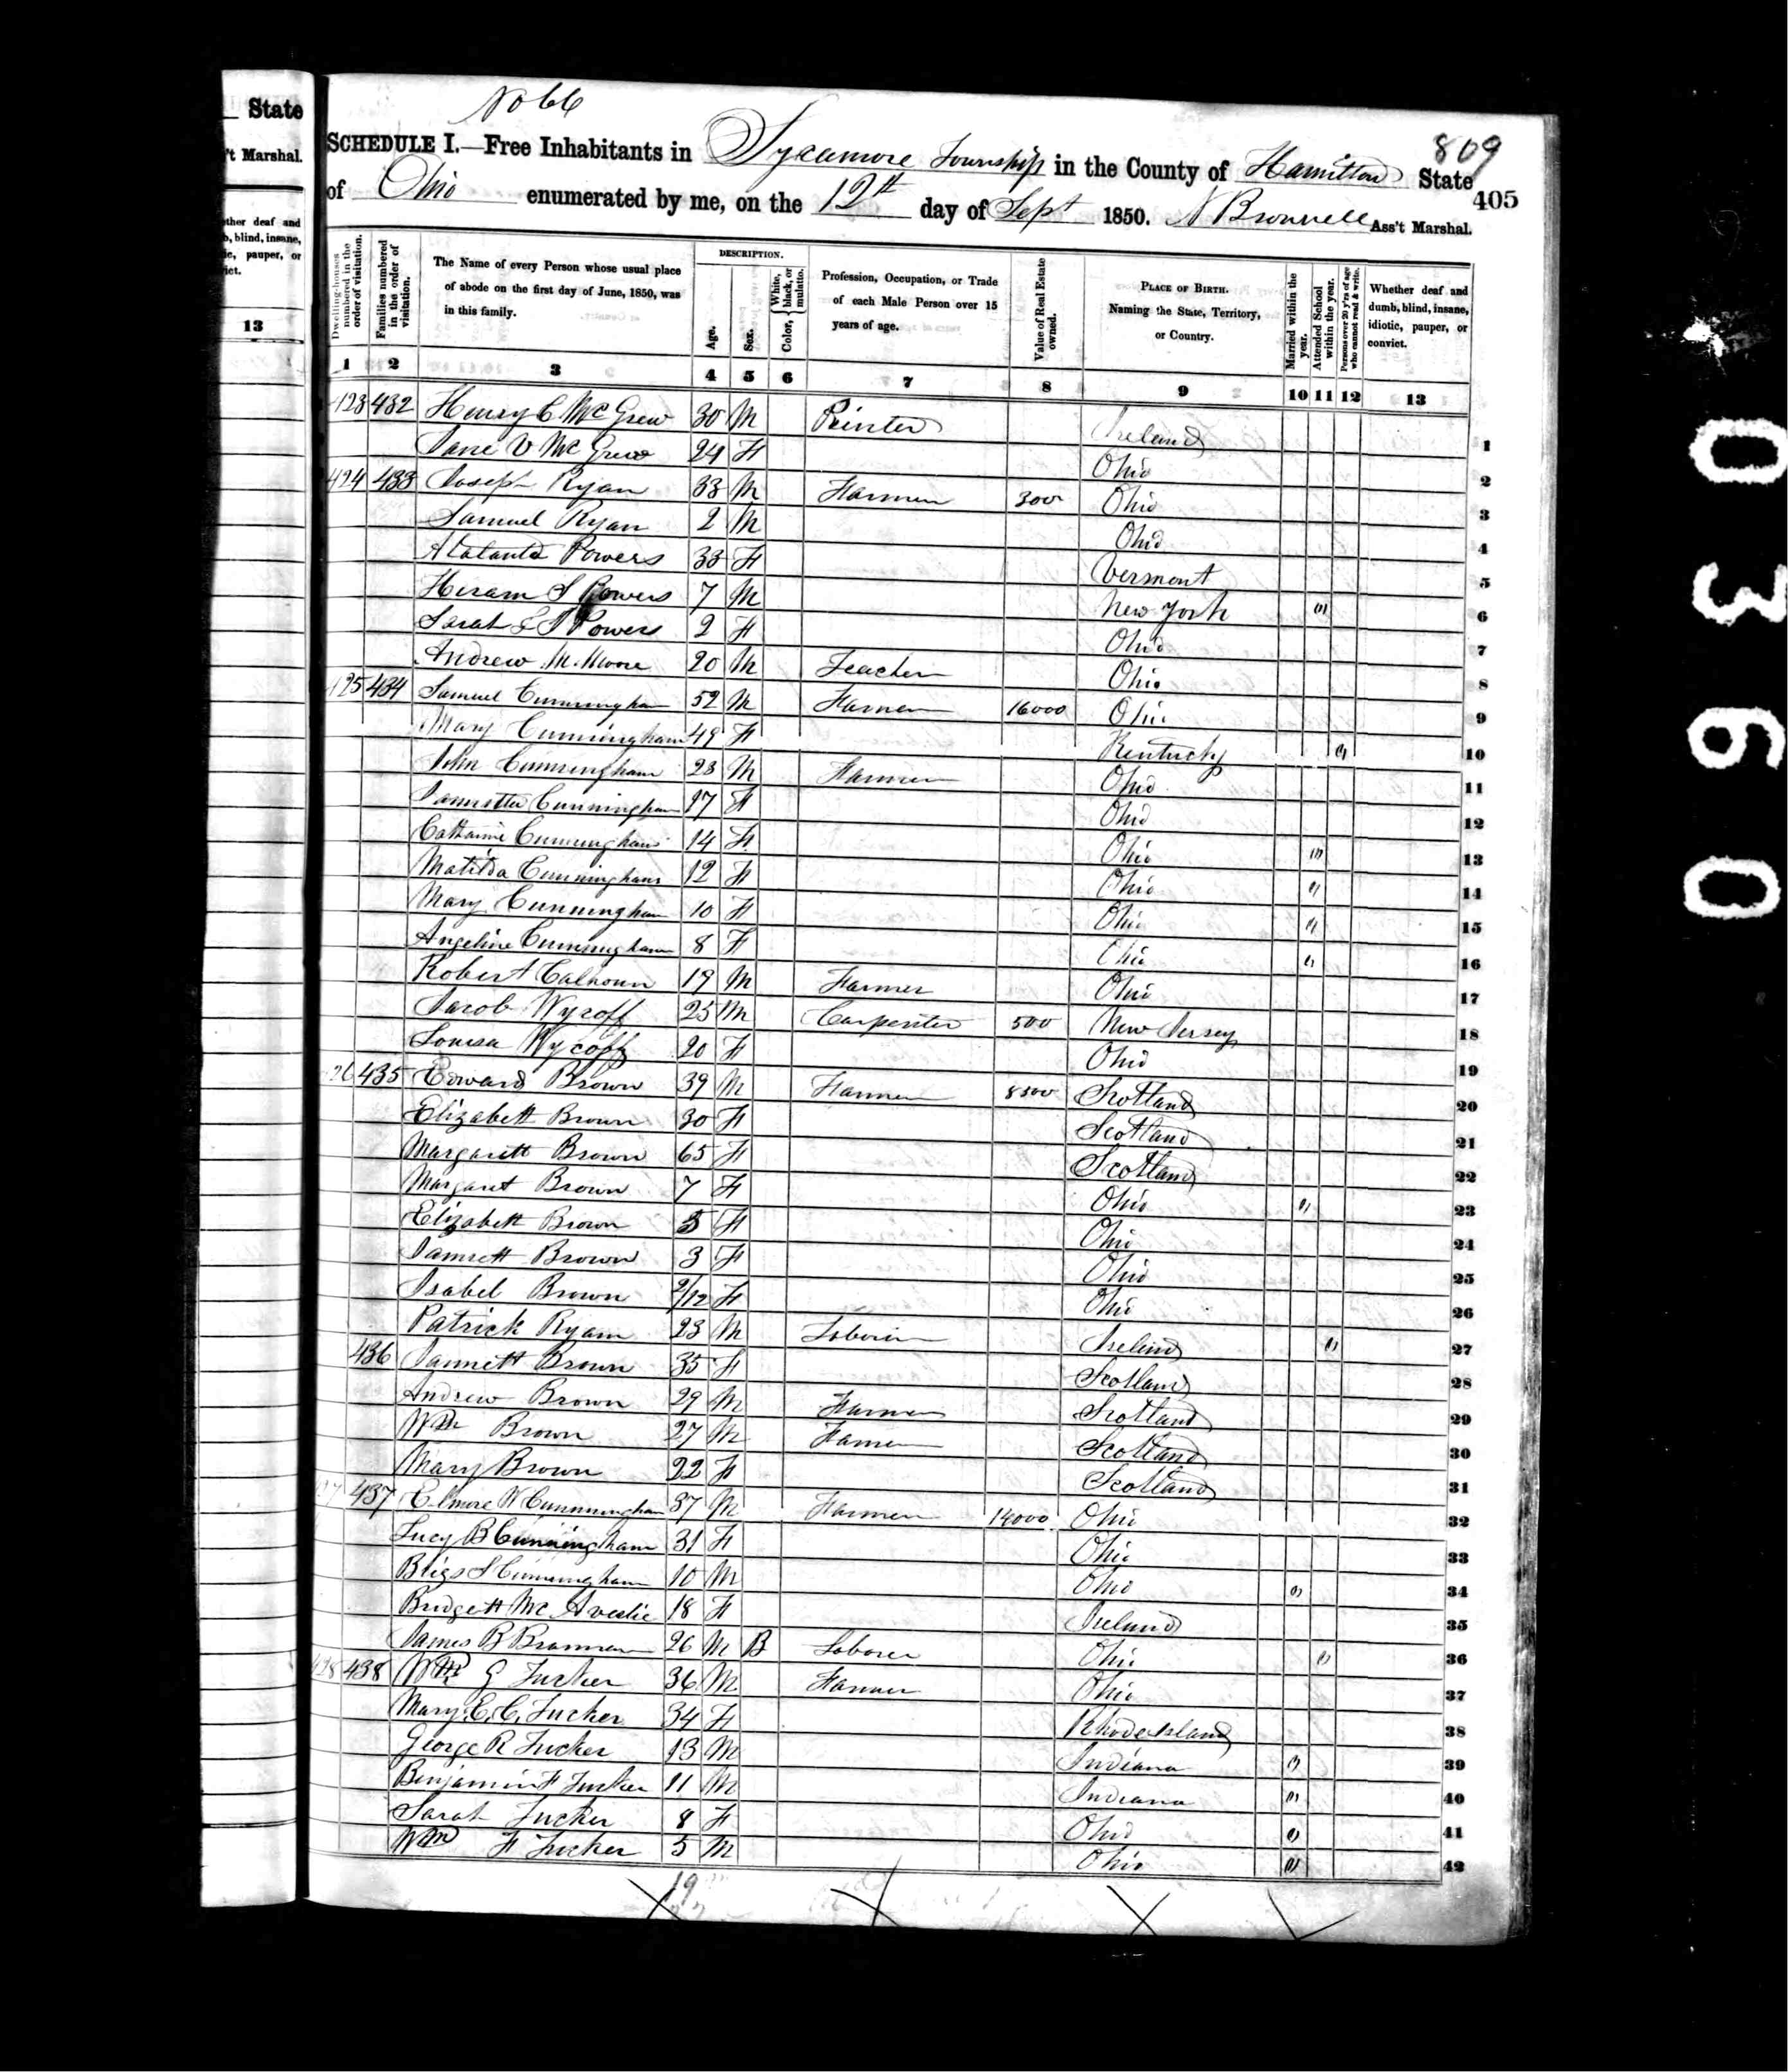 State
't Marshal.
ther deaf and
b, blind, insane,
ic, pauper, or
ict.
13
No 66
809
SCHEDULE I.—Free Inhabitants in Sycamore Township in the County of Hamilton State
405
of Ohio enumerated by me, on the 12th day of Sept 1850. N Brownell Ass't Marshal.
Dwelling-houses numbered in the order of visitation.
Families numbered in the order of visitation.
The Name of every Person whose usual place of abode on the first day of June, 1850, was in this family.
DESCRIPTION.
Age.
Sex.
Color, { White, black, or mulatto.
Profession, Occupation, or Trade of each Male Person over 15 years of age.
Value of Real Estate owned.
PLACE OF BIRTH. Naming the State, Territory, or Country.
Married within the year.
Attended School within the year.
Persons over 20 y'rs of age who cannot read & write.
Whether deaf and dumb, blind, insane, idiotic, pauper, or convict.
1 2 3 4 5 6 7 8 9 10 11 12 13
423 432 Henry C McGrew 30 M Printer Ireland 1
Jane V McGrew 24 F Ohio 2
424 433 Joseph Ryan 33 M Farmer 300 Ohio 3
Samuel Ryan 2 M Ohio 4
Atalanta Powers 33 F Vermont 5
Hiram S Powers 7 M New York 1 6
Sarah E J Powers 2 F Ohio 7
Andrew M. Moore 20 M Teacher Ohio 8
425 434 Samuel Cunningham 52 M Farmer 16000 Ohio 9
Mary Cunningham 49 F Kentucky 1 10
John Cunningham 23 M Farmer Ohio 11
Cunningham 17 F Ohio 12
Catharine Cunningham 14 F Ohio 1 13
Matilda Cunningham 12 F Ohio 1 14
Mary Cunningham 10 F Ohio 1 15
Angeline Cunningham 8 F Ohio 1 16
Robert Calhoun 19 M Farmer Ohio 17
Jacob Wycoff 25 M Carpenter 500 New Jersey 18
Louisa Wycoff 20 F Ohio 19
26 435 Edward Brown 39 M Farmer 8500 Scotland 20
Elizabett Brown 30 F Scotland 21
Margarett Brown 65 F Scotland 22
Margaret Brown 7 F Ohio 1 23
Elizabett Brown 5 F Ohio 24
Brown 3 F Ohio 25
Isabel Brown 2/12 F Ohio 26
Patrick Ryam 23 M Ireland 1 27
436 Jannett Brown 35 F Scotland 28
Andrew Brown 29 M Farmer Scotland 29
Wm Brown 27 M Farmer Scotland 30
Mary Brown 22 F Scotland 31
437 Elmore W Cunningham 37 M Farmer 14000 Ohio 32
Lucy B Cunningham 31 F Ohio 33
Cunningham 10 M Ohio 1 34
Bridgett 18 F Ireland 35
James B 26 M B Laborer Ohio 1 36
428 438 Wm G Tucker 36 M Farmer Ohio 37
Mary E. C. Tucker 34 F Rhode Island 38
George R Tucker 13 M Indiana 1 39
Benjamin F Tucker 11 M Indiana 1 40
Sarah Tucker 8 F Ohio 1 41
Wm F Tucker 5 M Ohio 1 42
19
0390